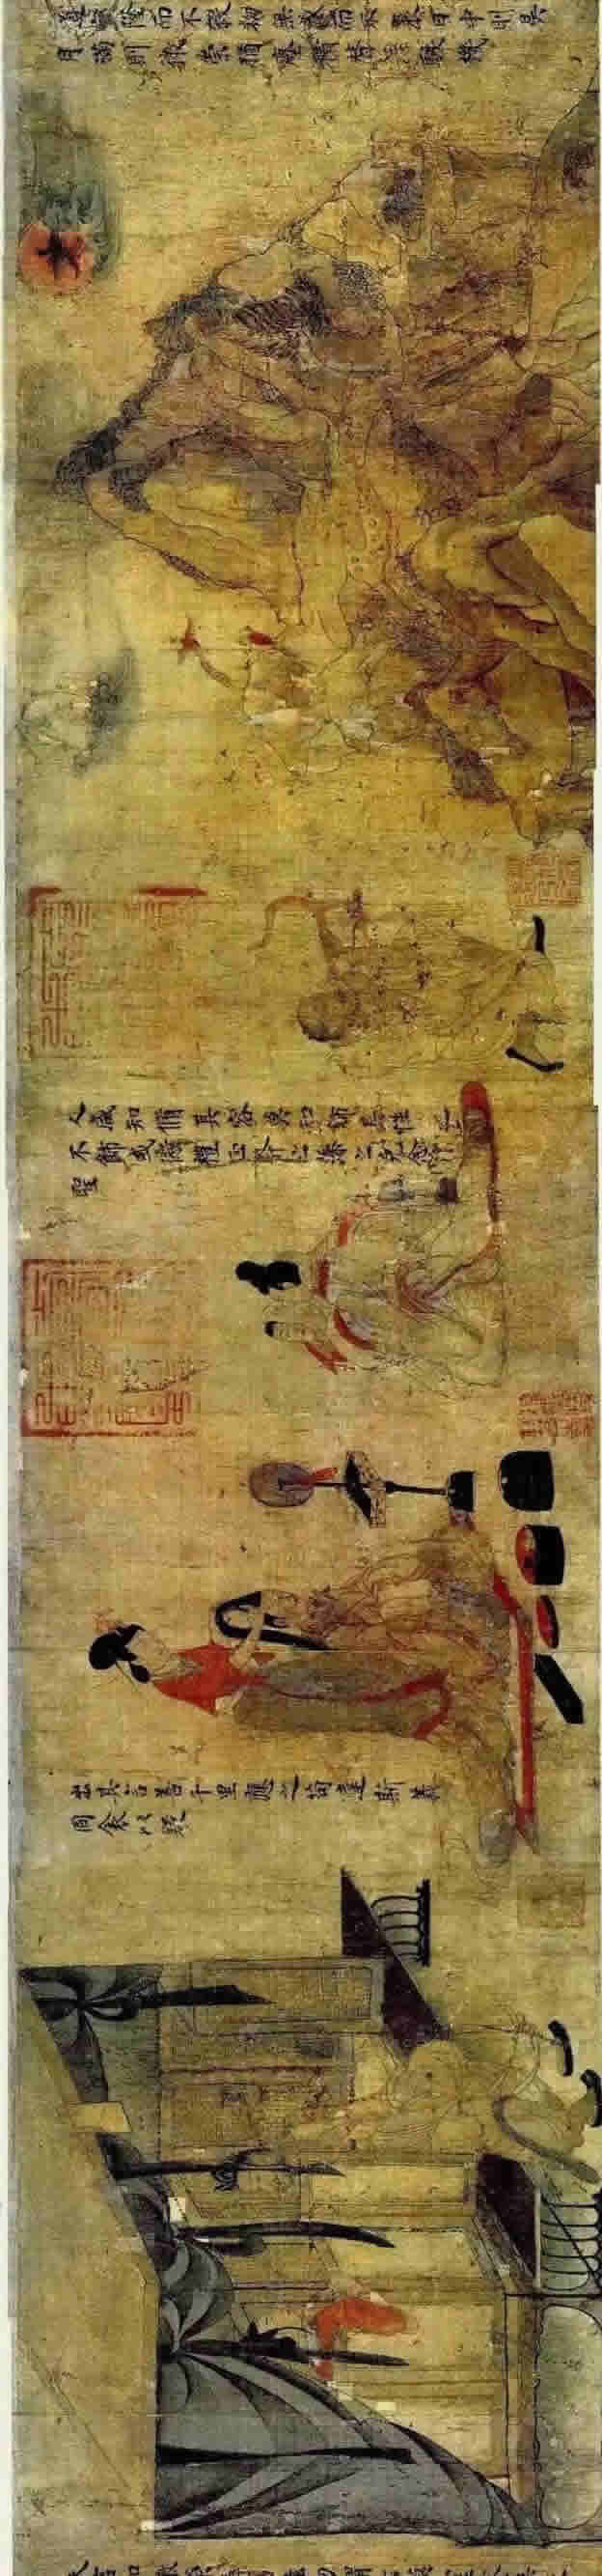 道罔隆而不殺物無盛而不衰日中則昃
月滿則微崇猶塵積替若駭機
人咸知脩其容莫知飾其性性之
不飾或愆禮正斧之藻之克念作
聖
出其言善千里應之苟違斯義
同衾以疑